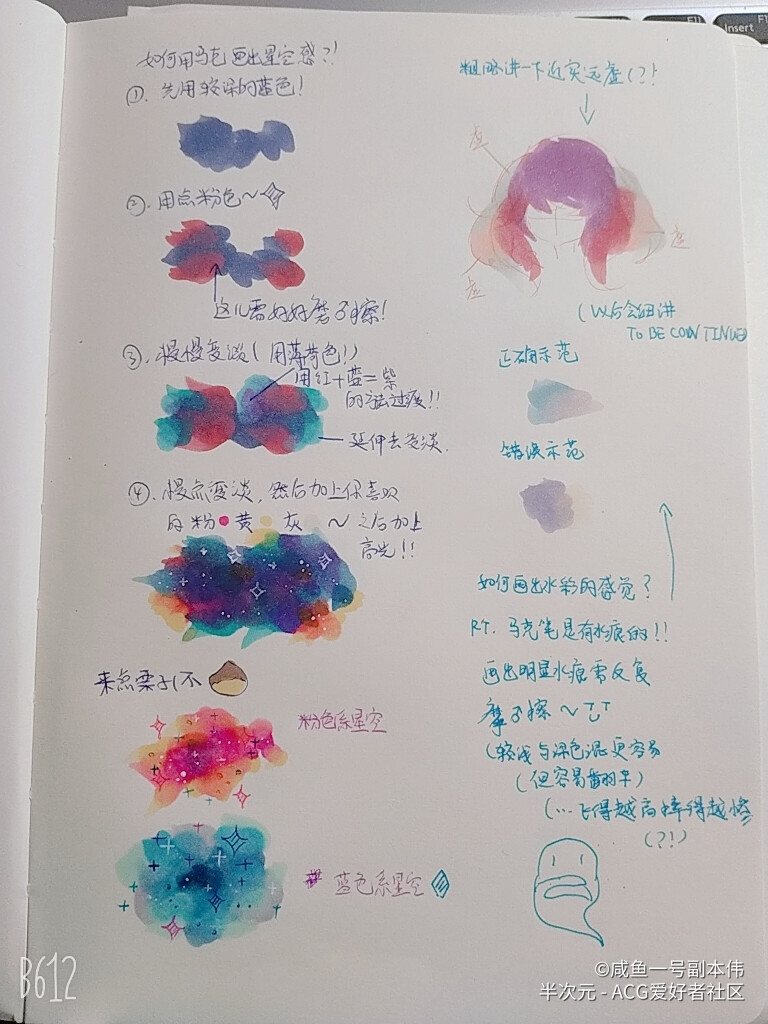 如何用马克画出星空感?!
①.先用较深的蓝色!
②.用点粉色~
这儿需好好磨了擦!
③.慢慢变淡(用薄荷色!)
用红+蓝=紫
的方法过渡!!
延伸去变淡.
④.慢点变淡,然后加上你喜欢
的粉 黄 灰 ~之后加上
高光!!
来点栗子(不
粉色系星空
# 蓝色系星空
粗略讲一下近实远虚(?!
虚
虚
虚
(以后会细讲
TO BE CONTINUED
正确示范
错误示范
如何画出水彩的感觉?
RT.马克笔是有水痕的!!
画出明显水痕需反复
摩了擦~
(较浅与深色混更容易
(但容易翻车)
(…飞得越高摔得越惨
(?!)
Insert
B612
©咸鱼一号副本伟
半次元 - ACG爱好者社区